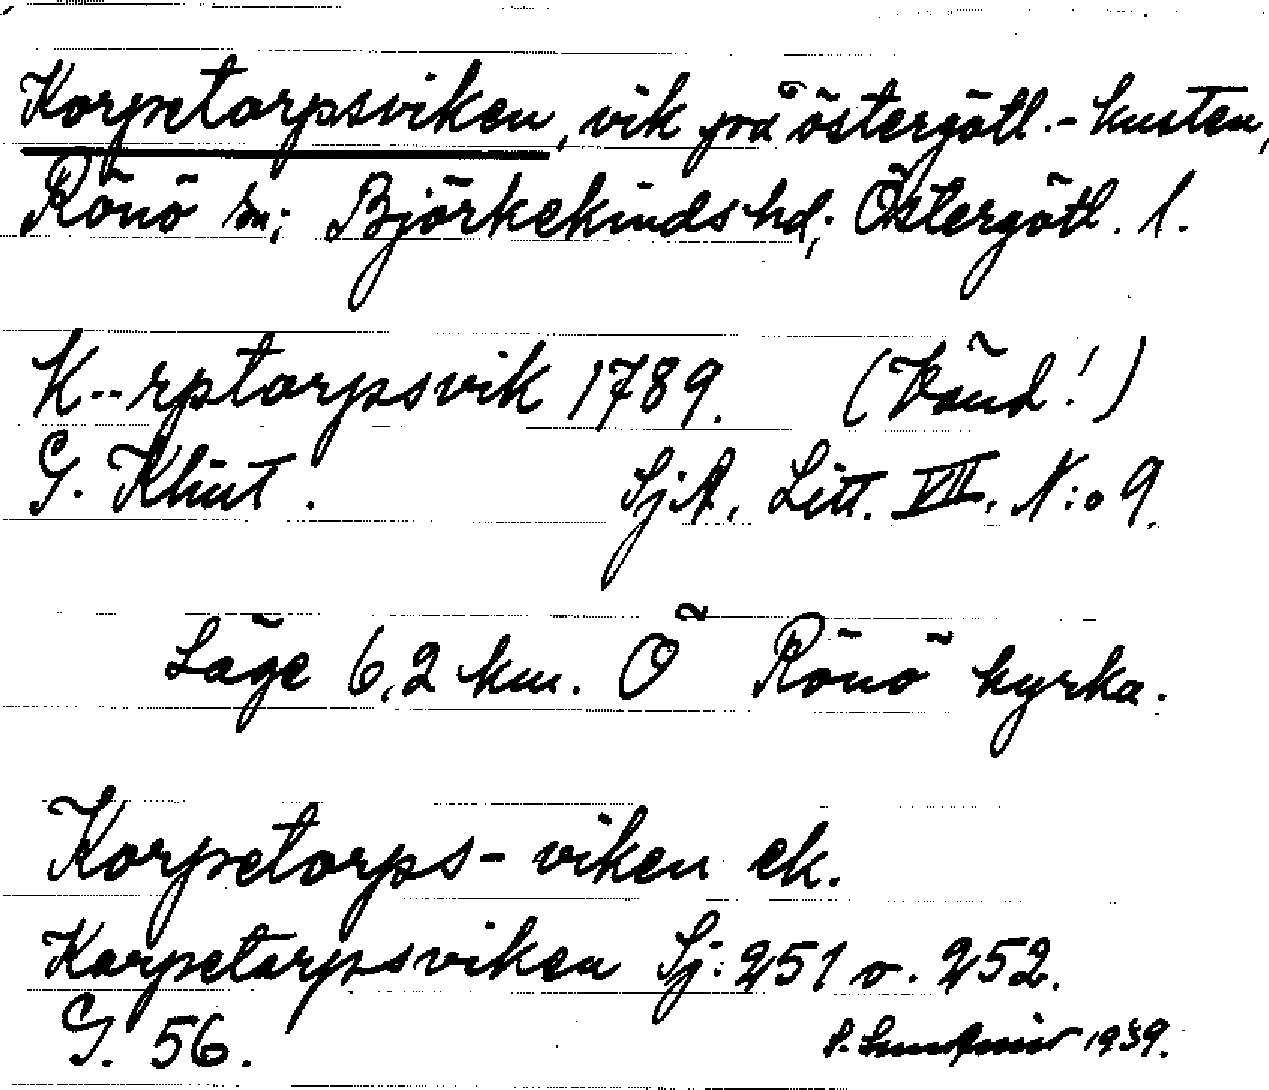 Korpetorpsviken, vik på östergötl.-kusten,
Rönö sn; Björkekinds hd; Östergötl. l.
K--rptorpsvik 1789. (Känd!)
G. Klint. SjA, Litt. VII. N:o 9.
Läge 6,2 km. O Rönö kyrka.
Korpetorps-viken ek.
Korpetorpsviken Sj: 251 o. 252.
G. 56. 1939.